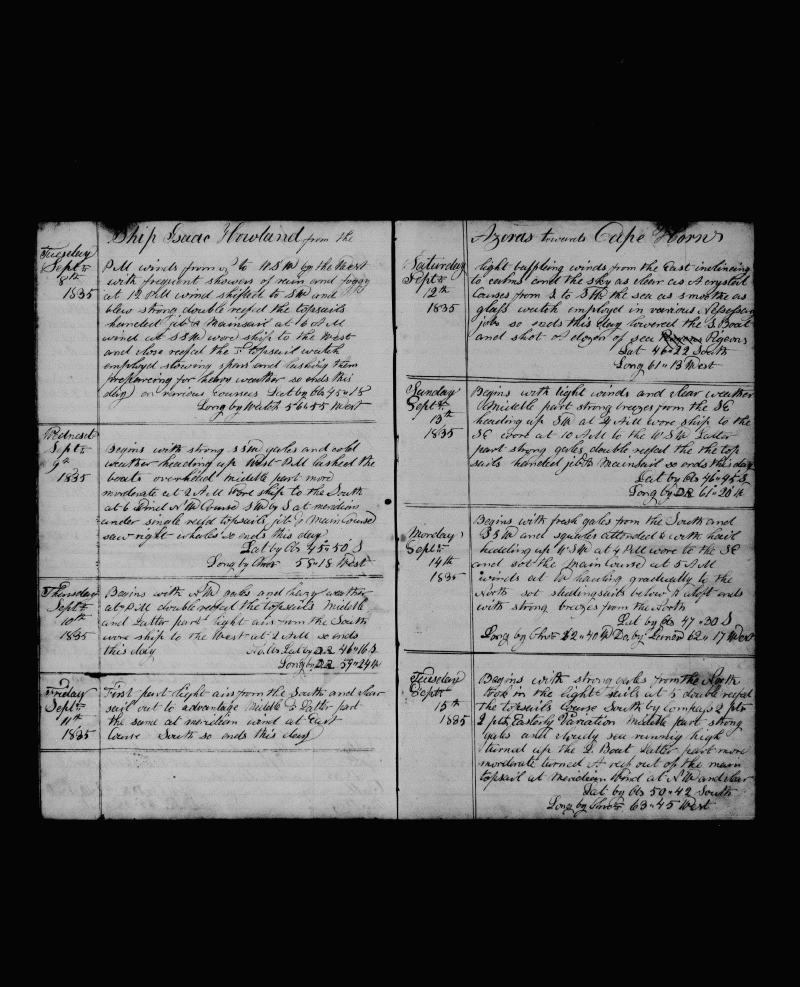 Ship Isaac Howland from the
Tuesday
Sept
8th
1835
PM winds from to W.S.W by the West
with frequent showers of rain and foggy
at 12 PM wind shifted to SW and
blew strong double reefed the topsails
handed jib & Mainsail at 6 AM
wind at SSW wore ship to the West
and close reefed the topsail watch
employed stowing spars and lashing them
preparing for heavy weather so ends this
day on various courses Lat by Obs 45"18
Long by Watch 56"45 West
Wednesd
Sept
9th
1835
Begins with strong SSW gales and cold
weather heading up West PM lashed the
boats overhead middle part more
moderate at 2 AM wore ship to the South
at 6 Wind NW Course SW by S at meridian
under single reefd topsails jib & Main Course
saw right whales so ends this day
Lat by Obs 45"50 S
Long by Chro 58"18 West
Thursday
Sept
10th
1835
Begins with NW gales and hazy weather
at PM double reefed the topsails Middle
and Latter part light airs from the South
wore ship to the West at 2 AM so ends
this day Lat by DR 46"16 S
Long by DR 59"24 W
Friday
Sept
11th
1835
First part light airs from the South and clear
sail out to advantage Middle & Latter part
the same at meridian wind at East
Course South so ends this day
Azoras towards Cape Horn
Saturday
Sept
12th
1835
light baffling winds from the East inclineing
to calms and the sky as clear as A crystal
Courses from S to SW the sea as smooth as
glass watch employed in various Nessessary
jobs so ends this day lowered the S. Boat
and shot A dozen of sea Pigeons
Lat 46"22 South
Long 61"13 West
Sunday
Sept
13th
1835
Begins with light winds and clear weather
Middle part strong breezes from the SE
heading up SW at 4 AM wore ship to the
SE wore at 10 AM to the WSW Latter
part strong gales double reefed the the top
sails handed jib & Mainsail so ends this day
Lat by Obs 46"45 S
Long by DR 61"20 W
Monday
Sept
14th
1835
Begins with fresh gales from the South and
SSW and squalls attended with hail
heading up W.SW at 4 PM wore to the SE
and set the main course at 5 AM
winds at W hauling gradually to the
North set studingsails below & aloft ends
with strong breezes from the North
Lat by Obs 47"30 S
Long by Chro 62"40 W Do by Lunar 62"17 West
Tuesday
Sept
15th
1835
Begins with strong gales from the North
took in the light sails at 5 double reefed
the topsails Course South by compass 2 pts
2 pts Easterly Variation Middle part strong
gales and cloudy sea running high
turned up the L Boat Latter part more
morderate turned A reef out of the main
topsail at Meridian Wind at NW and clear
Lat by Obs 50"42 South
Long by Chro 63"45 West